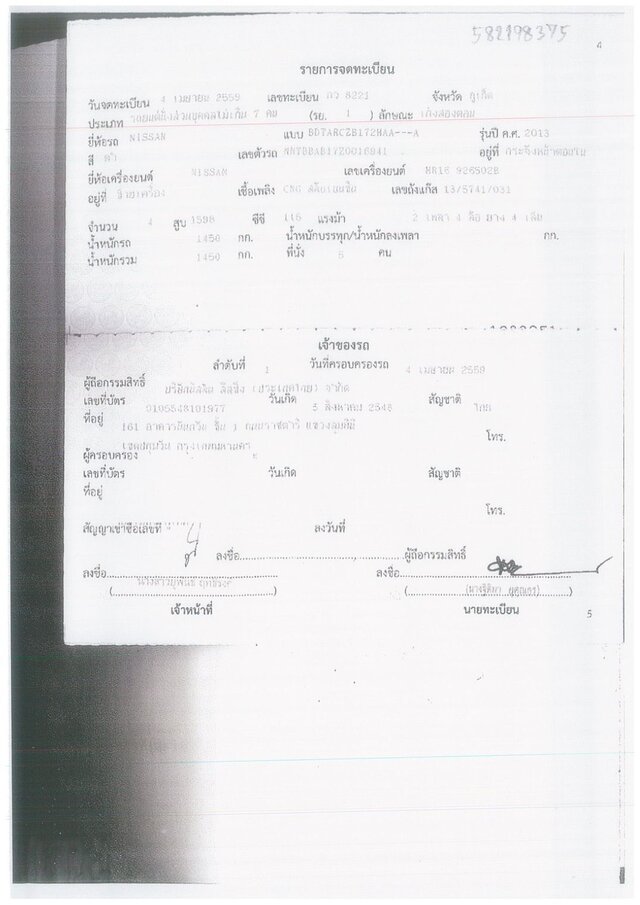 582198375
4
รายการจดทะเบียน
วันจดทะเบียน 4 เมษายน 2559 เลขทะเบียน กว 8221 จังหวัด ภูเก็ต
ประเภท รถยนต์นั่งส่วนบุคคลไม่เกิน 7 คน (รย. 1 ) ลักษณะ เก๋งสองตอน
ยี่ห้อรถ NISSAN แบบ BDTARCZB172HAA---A รุ่นปี ค.ศ. 2013
สี ดำ เลขตัวรถ อยู่ที่
ยี่ห้อเครื่องยนต์ NISSAN เลขเครื่องยนต์ HR16 926502B
อยู่ที่ เชื้อเพลิง CNG เลขถังแก๊ส 13/5741/031
จำนวน 4 สูบ 1598 ซีซี 116 แรงม้า 2 เพลา 4 ล้อ ยาง 4 เส้น
น้ำหนักรถ 1450 กก. น้ำหนักบรรทุก/น้ำหนักลงเพลา กก.
น้ำหนักรวม 1450 กก. ที่นั่ง 5 คน
เจ้าของรถ
ลำดับที่ 1 วันที่ครอบครองรถ 4 เมษายน 2559
ผู้ถือกรรมสิทธิ์ ลิสซิ่ง (ประเทศไทย) จำกัด
เลขที่บัตร 0105548101977 วันเกิด 3 สิงหาคม 2548 สัญชาติ ไทย
ที่อยู่ 161 ชั้น 1 ถนนราชดำริ แขวงลุมพินี
เขตปทุมวัน กรุงเทพมหานคร โทร.
ผู้ครอบครอง
เลขที่บัตร วันเกิด สัญชาติ
ที่อยู่
โทร.
สัญญาเช่าซื้อเลขที่ ลงวันที่
ลงชื่อ ผู้ถือกรรมสิทธิ์
ลงชื่อ ลงชื่อ
เจ้าหน้าที่ นายทะเบียน
5